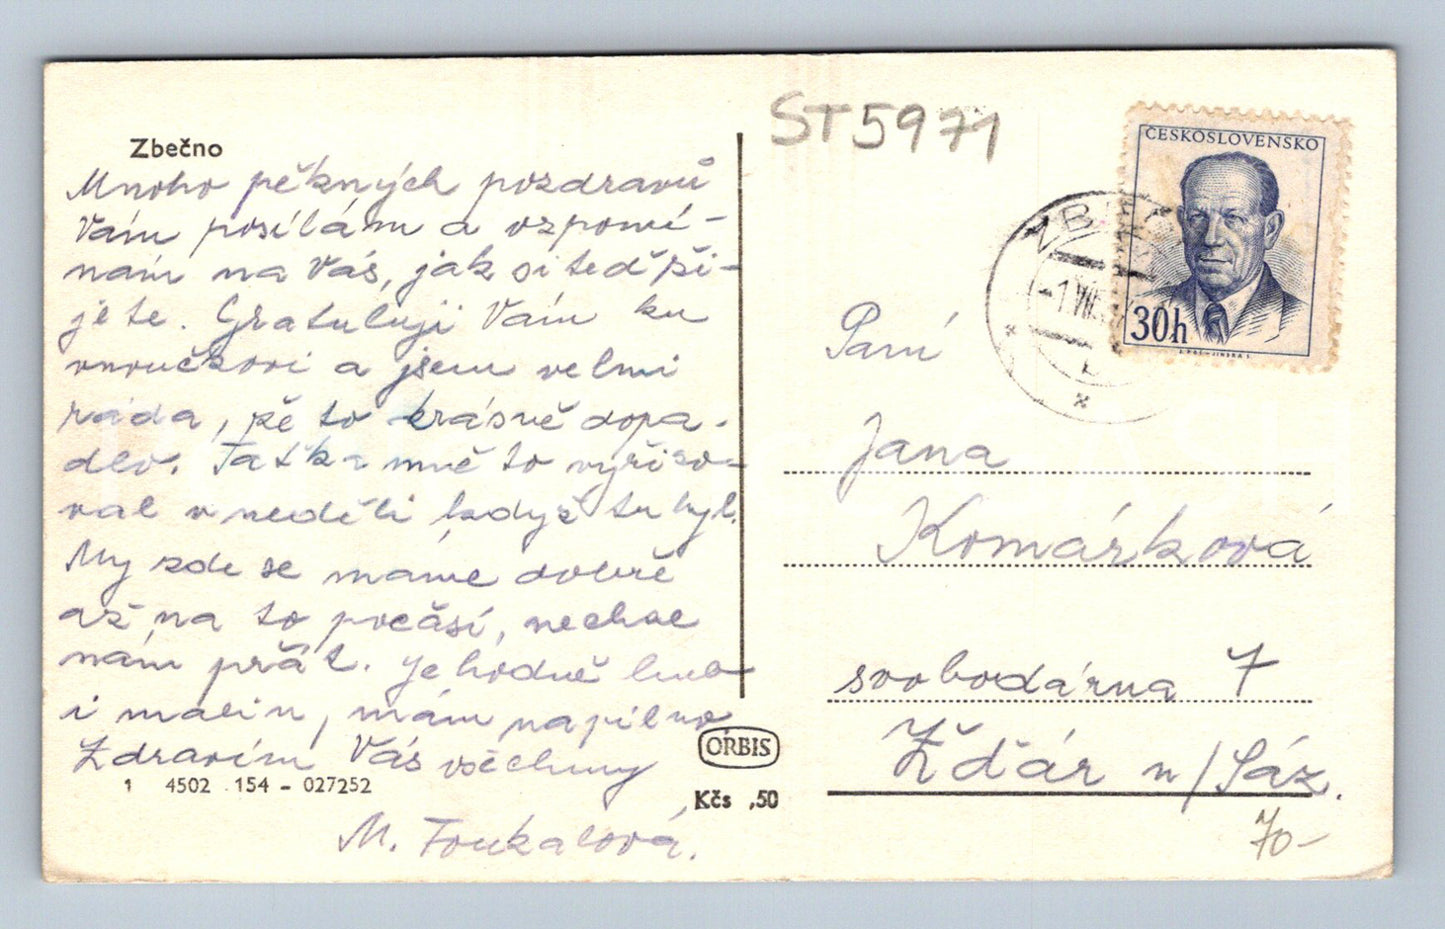 Zbečno
Mnoho pěkných pozdravů
Vám posílám a vzpomí-
nám na Vás, jak si teď ži-
jete. Gratuluji Vám ku
vnoučkovi a jsem velmi
ráda, žě to krásně dopa-
dlo. Taťka mně to vyřizo-
val v neděli když tu byl.
My zde se máme dobře
až na to počásí, nechce
nám přát. Je hodně hub
i malin, mám napilno
Zdravím Vás všechny
M. Toukalová.
1 4502 154 - 027252
ORBIS
Kčs ,50
ST5971
ČESKOSLOVENSKO
30h
Paní
Jana
Komárková
svobodárna 7
Žďár n/Sáz.
70-